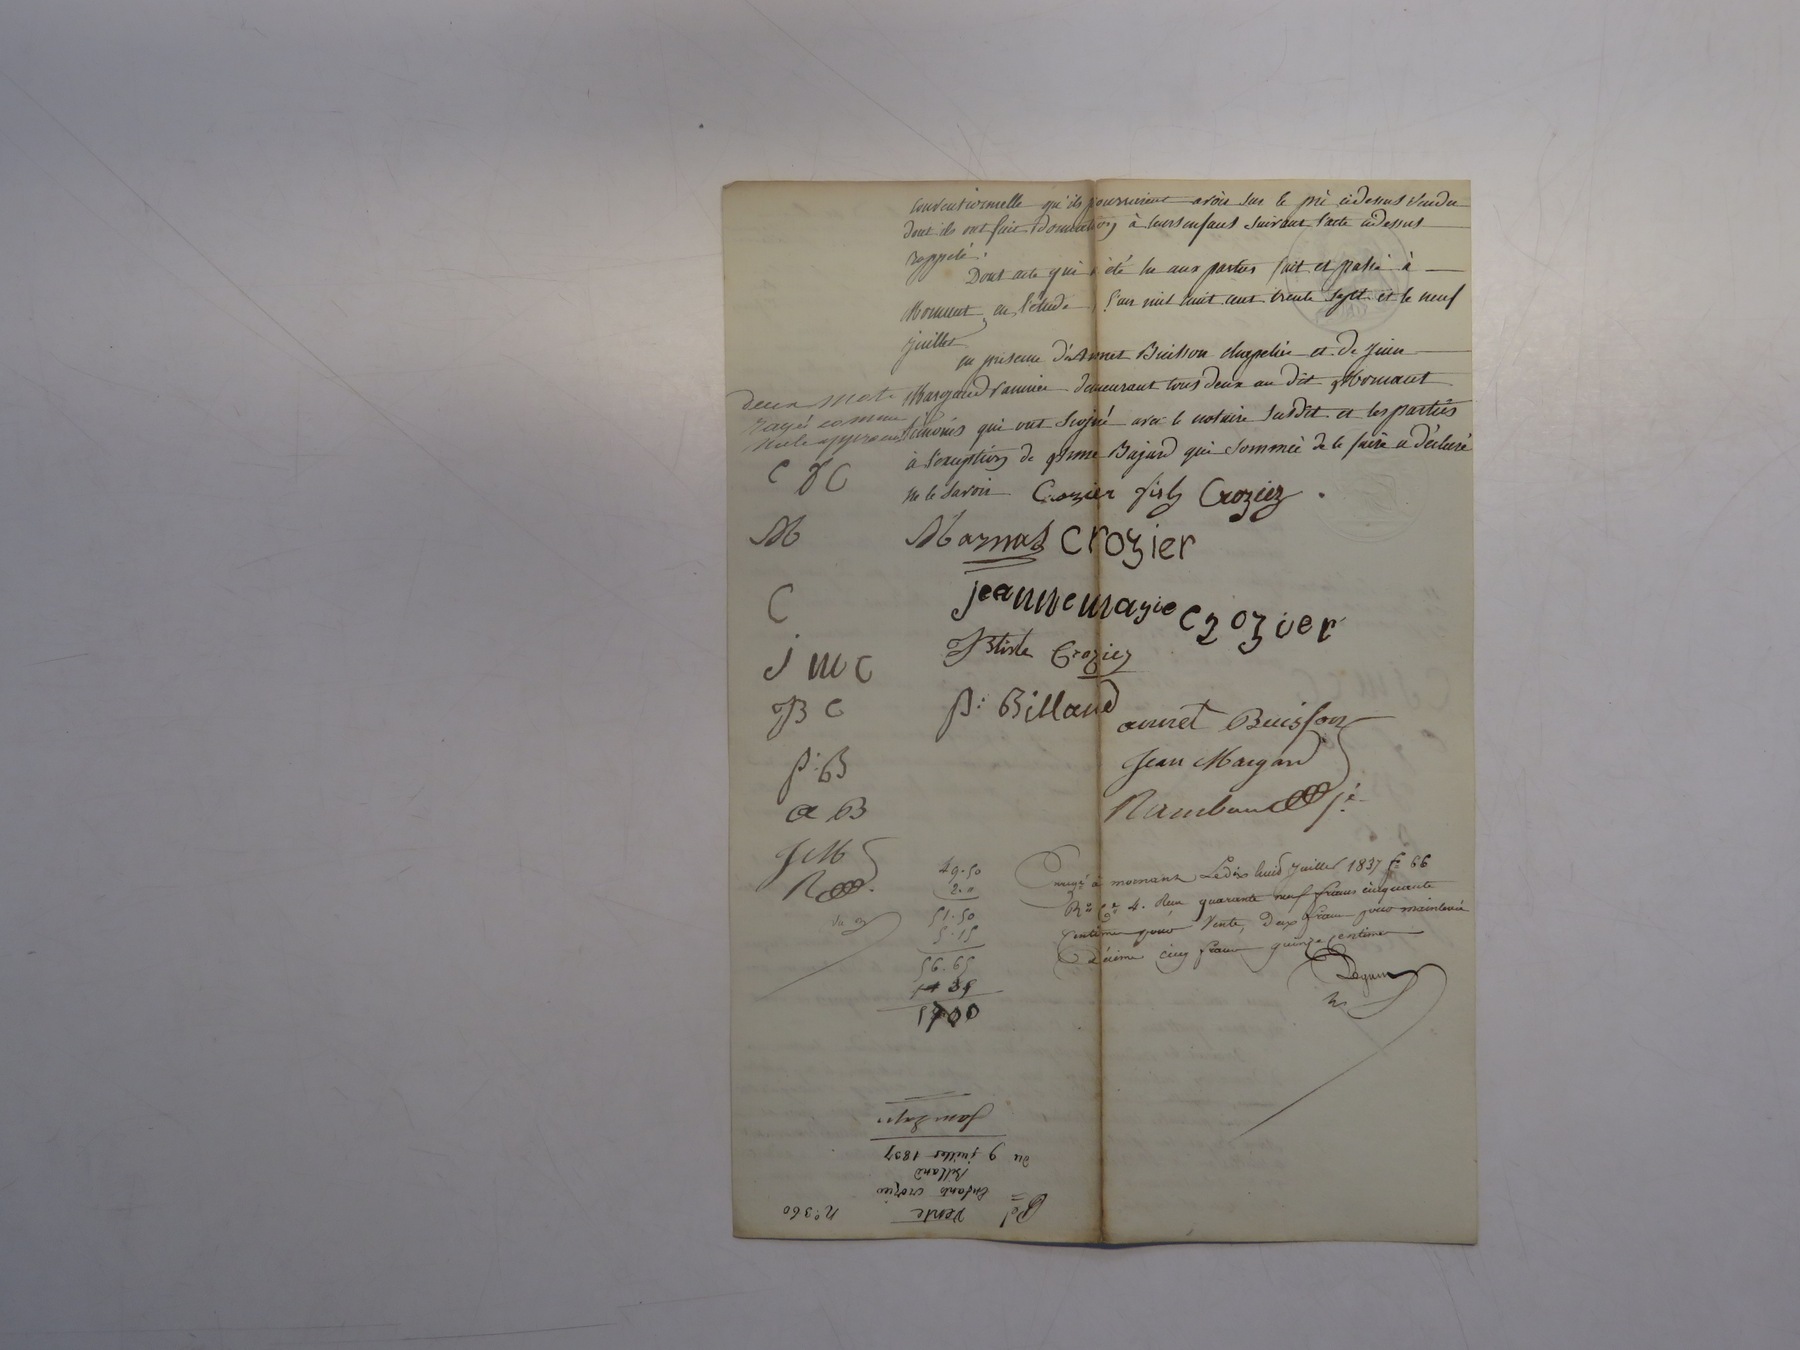 conventionnelle qu'ils pourraient avoir sur le pré cidessus vendu
dont ils ont fait donnation à leurs enfants suivant l'acte cidessus
rappelé.
Dont acte qui a été lu aux parties fait et passé à
Mornant en l'étude, l'an mil huit cent trente sept et le neuf
juillet
en présence d'Annet Buisson chapelier et de Jean
Margand vannier demeurant tous deux au dit Mornant
témoins qui ont signé avec le notaire susdit et les parties
à l'exception de Bajard qui sommée de le faire a déclaré
ne le savoir
deux mots
rayé comme
nuls approuvé
Crozier fils Crozier
C f C
M
Marnas Crozier
C
jeanne marie crozier
J M C
JBtiste Crozier
JB C
p: Billaud
p: B
annet Buisson
a B
Jean Margand
J M
Rambaud
R
49.50
2.0
51.50
5.15
56.65
Enregé à mornant Le dix huit Juillet 1837 f° 66
R° Ce 4. Reçu quarante neuf francs cinquante
centimes pour Vente, Deux francs pour mainlevée
Décime cinq francs quinze centimes
N° 360
Vente
Enfants Crozier
Billaud
du 9 juillet 1837